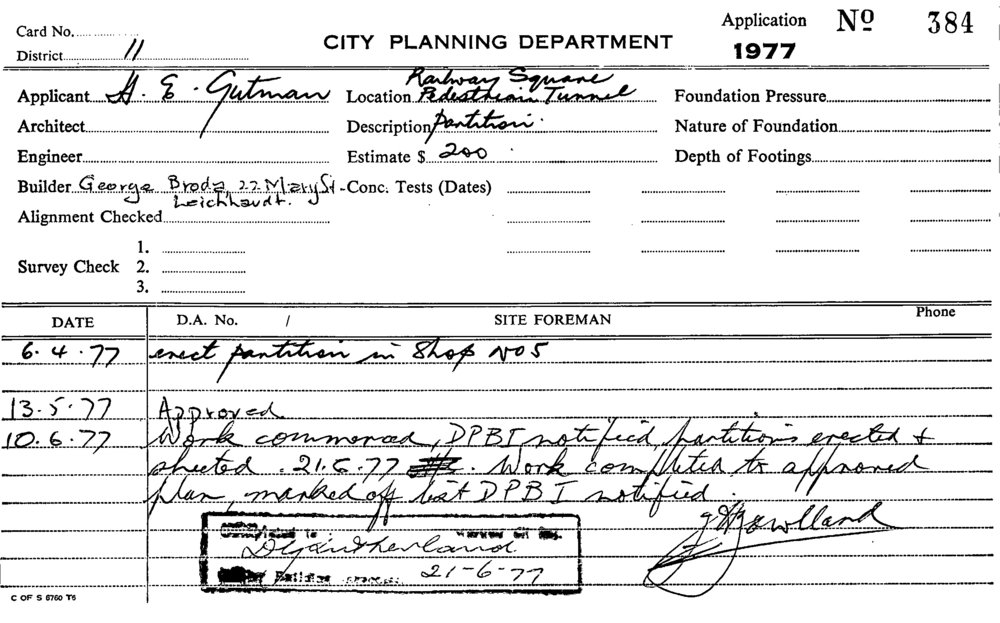 Card No.
District 11
CITY PLANNING DEPARTMENT
Application No 384
1977
Applicant H. E. Gutman
Location Railway Square
Pedestrian Tunnel
Foundation Pressure
Architect
Description partition.
Nature of Foundation
Engineer
Estimate $ 200
Depth of Footings
Builder George Broda, 22 Mary St
Leichhardt.
Conc. Tests (Dates)
Alignment Checked
Survey Check
1.
2.
3.
DATE D.A. No. / SITE FOREMAN Phone
6.4.77 erect partition in Shop No 5
13.5.77 Approved
10.6.77 Work commenced, DPBI notified, partitions erected &
sheeted. 21.6.77. Work completed to approved
plan, marked off list DPBI notified.
21-6-77
C OF S 8760 T6